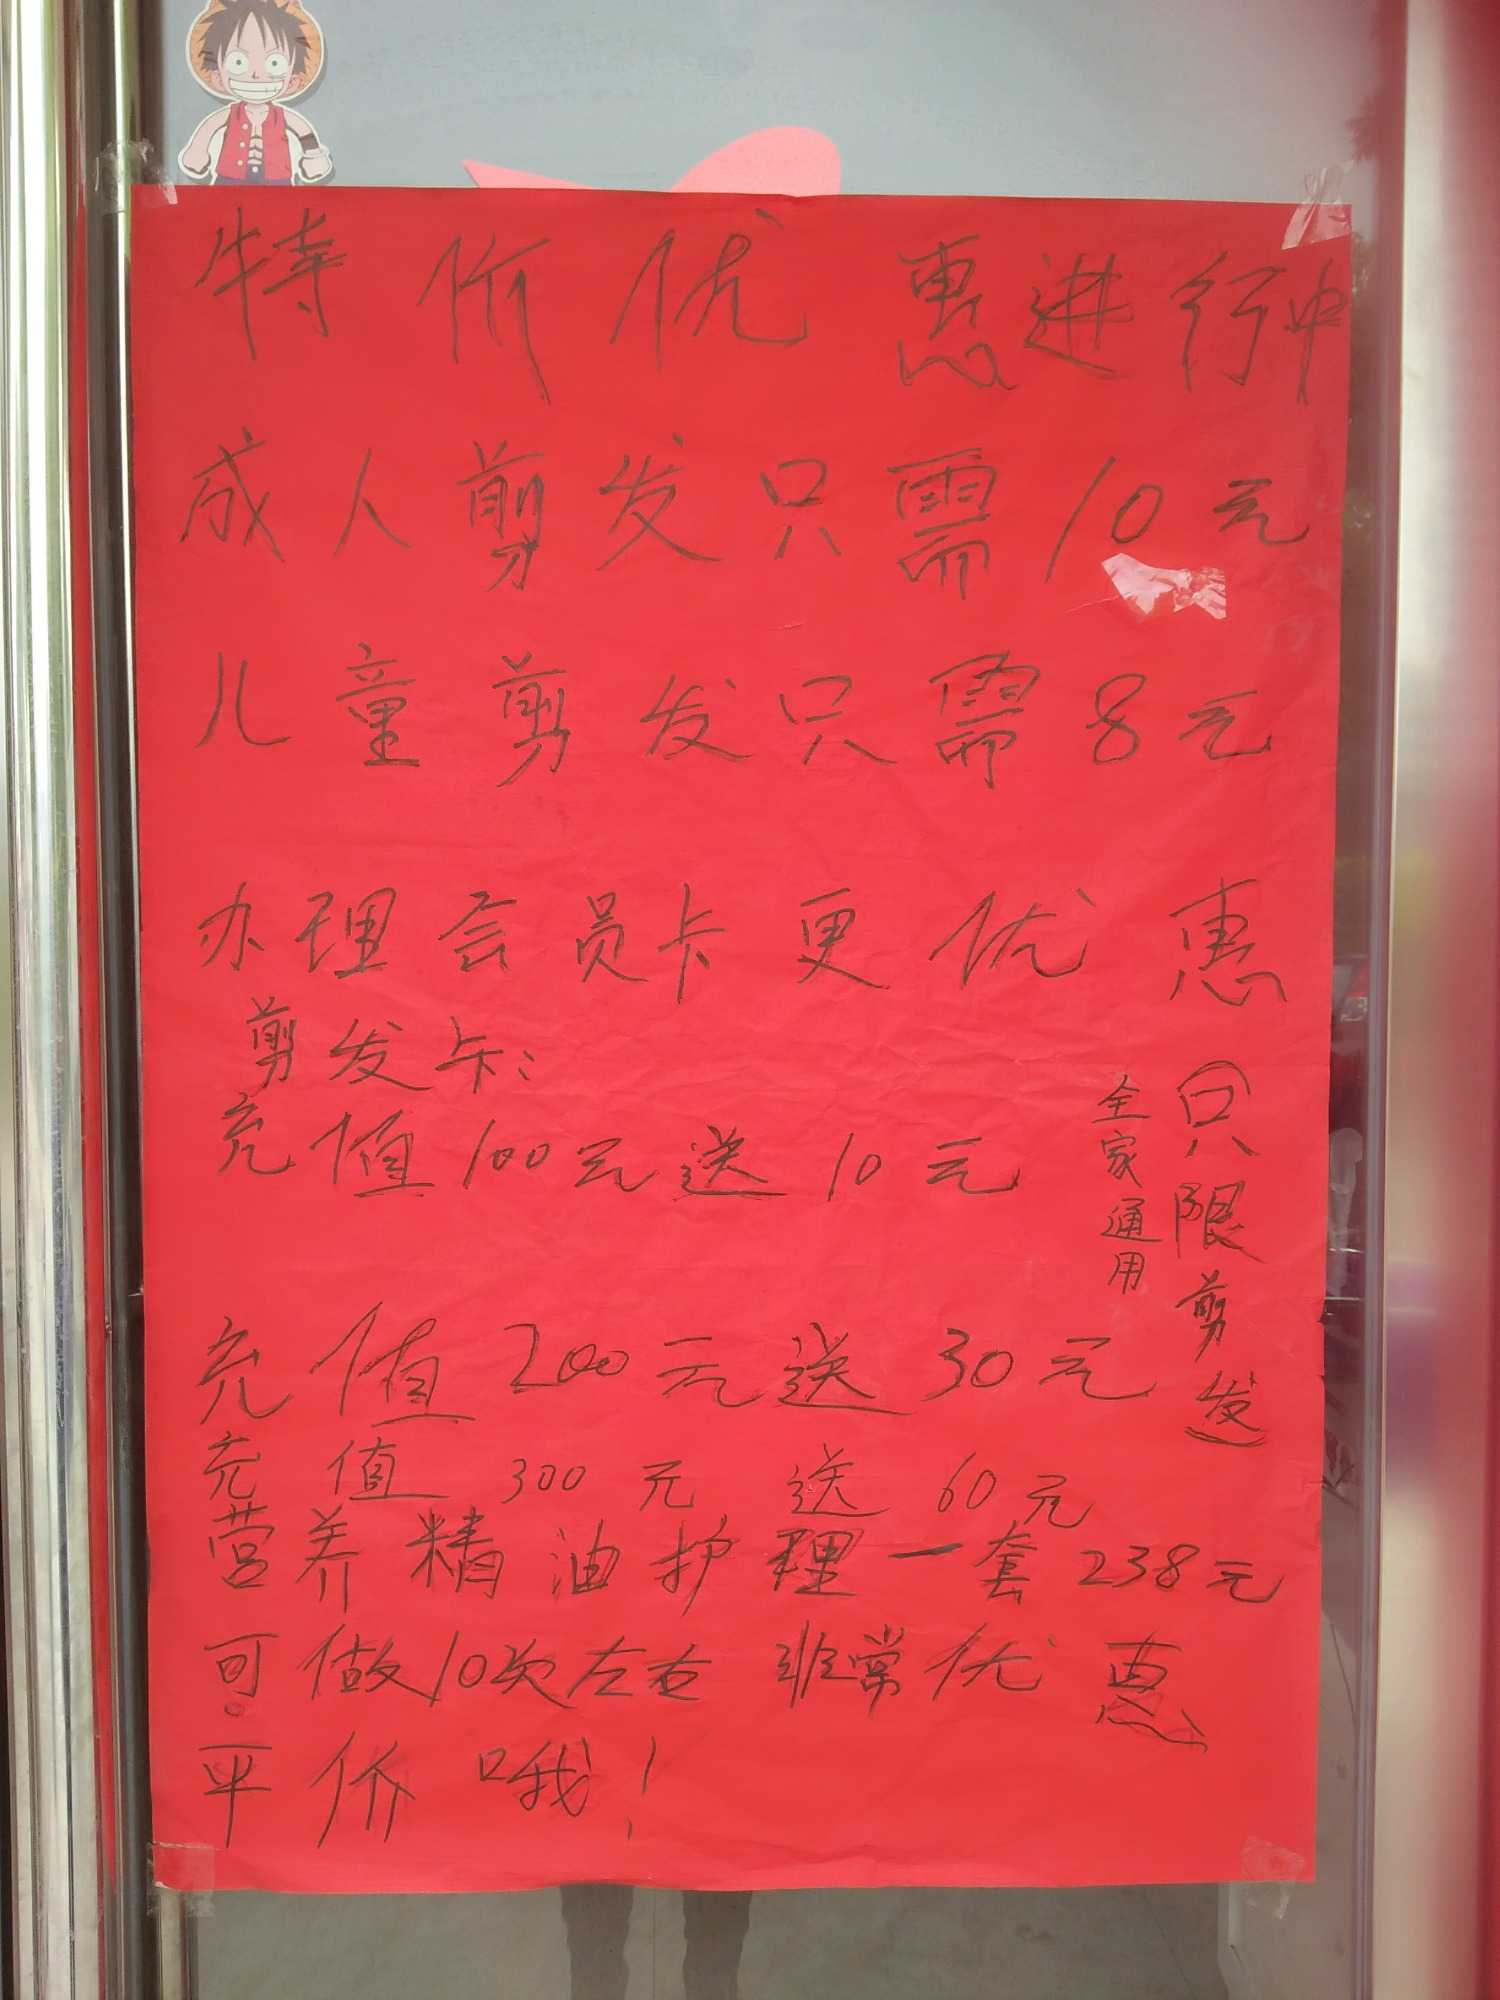 特价优惠进行中
成人剪发只需10元
儿童剪发只需8元
办理会员卡更优惠
剪发卡:
充值100元送10元
全家通用
只限剪发
充值200元送30元
充值300元送60元
营养精油护理一套238元
可做10次左右 非常优惠
平价哦!